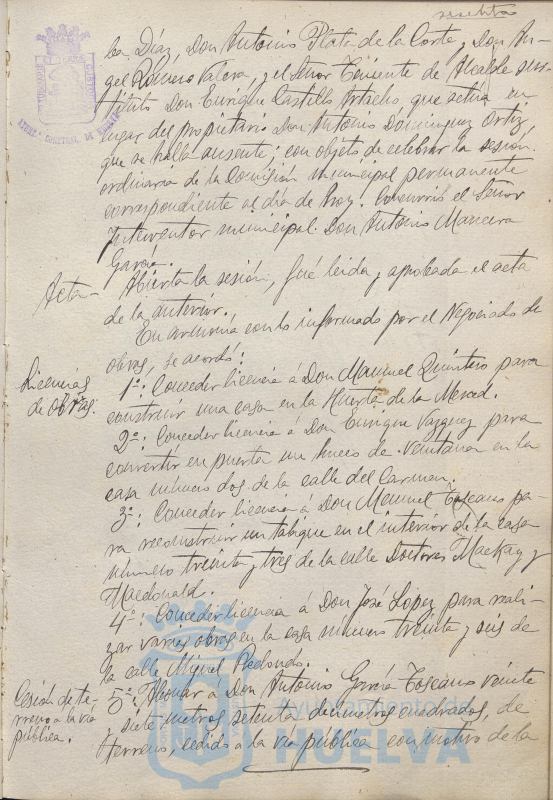 sesenta
ba Díaz, Don Antonio Plata de la Corte, Don An-
gel Romero Valera, y el Señor Teniente de Alcalde sus-
tituto Don Enrique Castillo Artacho, que actúa en
lugar del propietario Don Antonio Dominguez Ortiz,
que se halla ausente; con objeto de celebrar la sesión
ordinaria de la Comisión municipal permanente
correspondiente al día de hoy. Concurrió el Señor
Interventor municipal Don Antonio Mancera
Garcia.
Acta- Abierta la sesión, fué leida y aprobada el acta
de la anterior.
En armonía con lo informado por el Negociado de
obras, se acordó:
Licencias
de obras.
1º: Conceder licencia á Don Manuel Quintero para
construir una casa en la Huerta de la Merced.
2º: Conceder licencia á Don Enrique Vazquez para
convertir en puerta un hueco de ventana en la
casa número dos de la calle del Carmen.
3º: Conceder licencia á Don Manuel Toscano pa-
ra reconstruir un tabique en el interior de la casa
número treinta y tres de la calle Doctores Mackay y
Macdonald.
4º: Conceder licencia á Don José Lopez para reali-
zar varias obras en la casa número treinta y seis de
la calle Miguel Redondo.
Cesión de te-
rreno a la vía
pública.
5º: Abonar á Don Antonio García Toscano veinte
siete metros setenta decimetros cuadrados, de
terreno, cedido a la vía pública con motivo de la
Ayuntamiento de
HUELVA